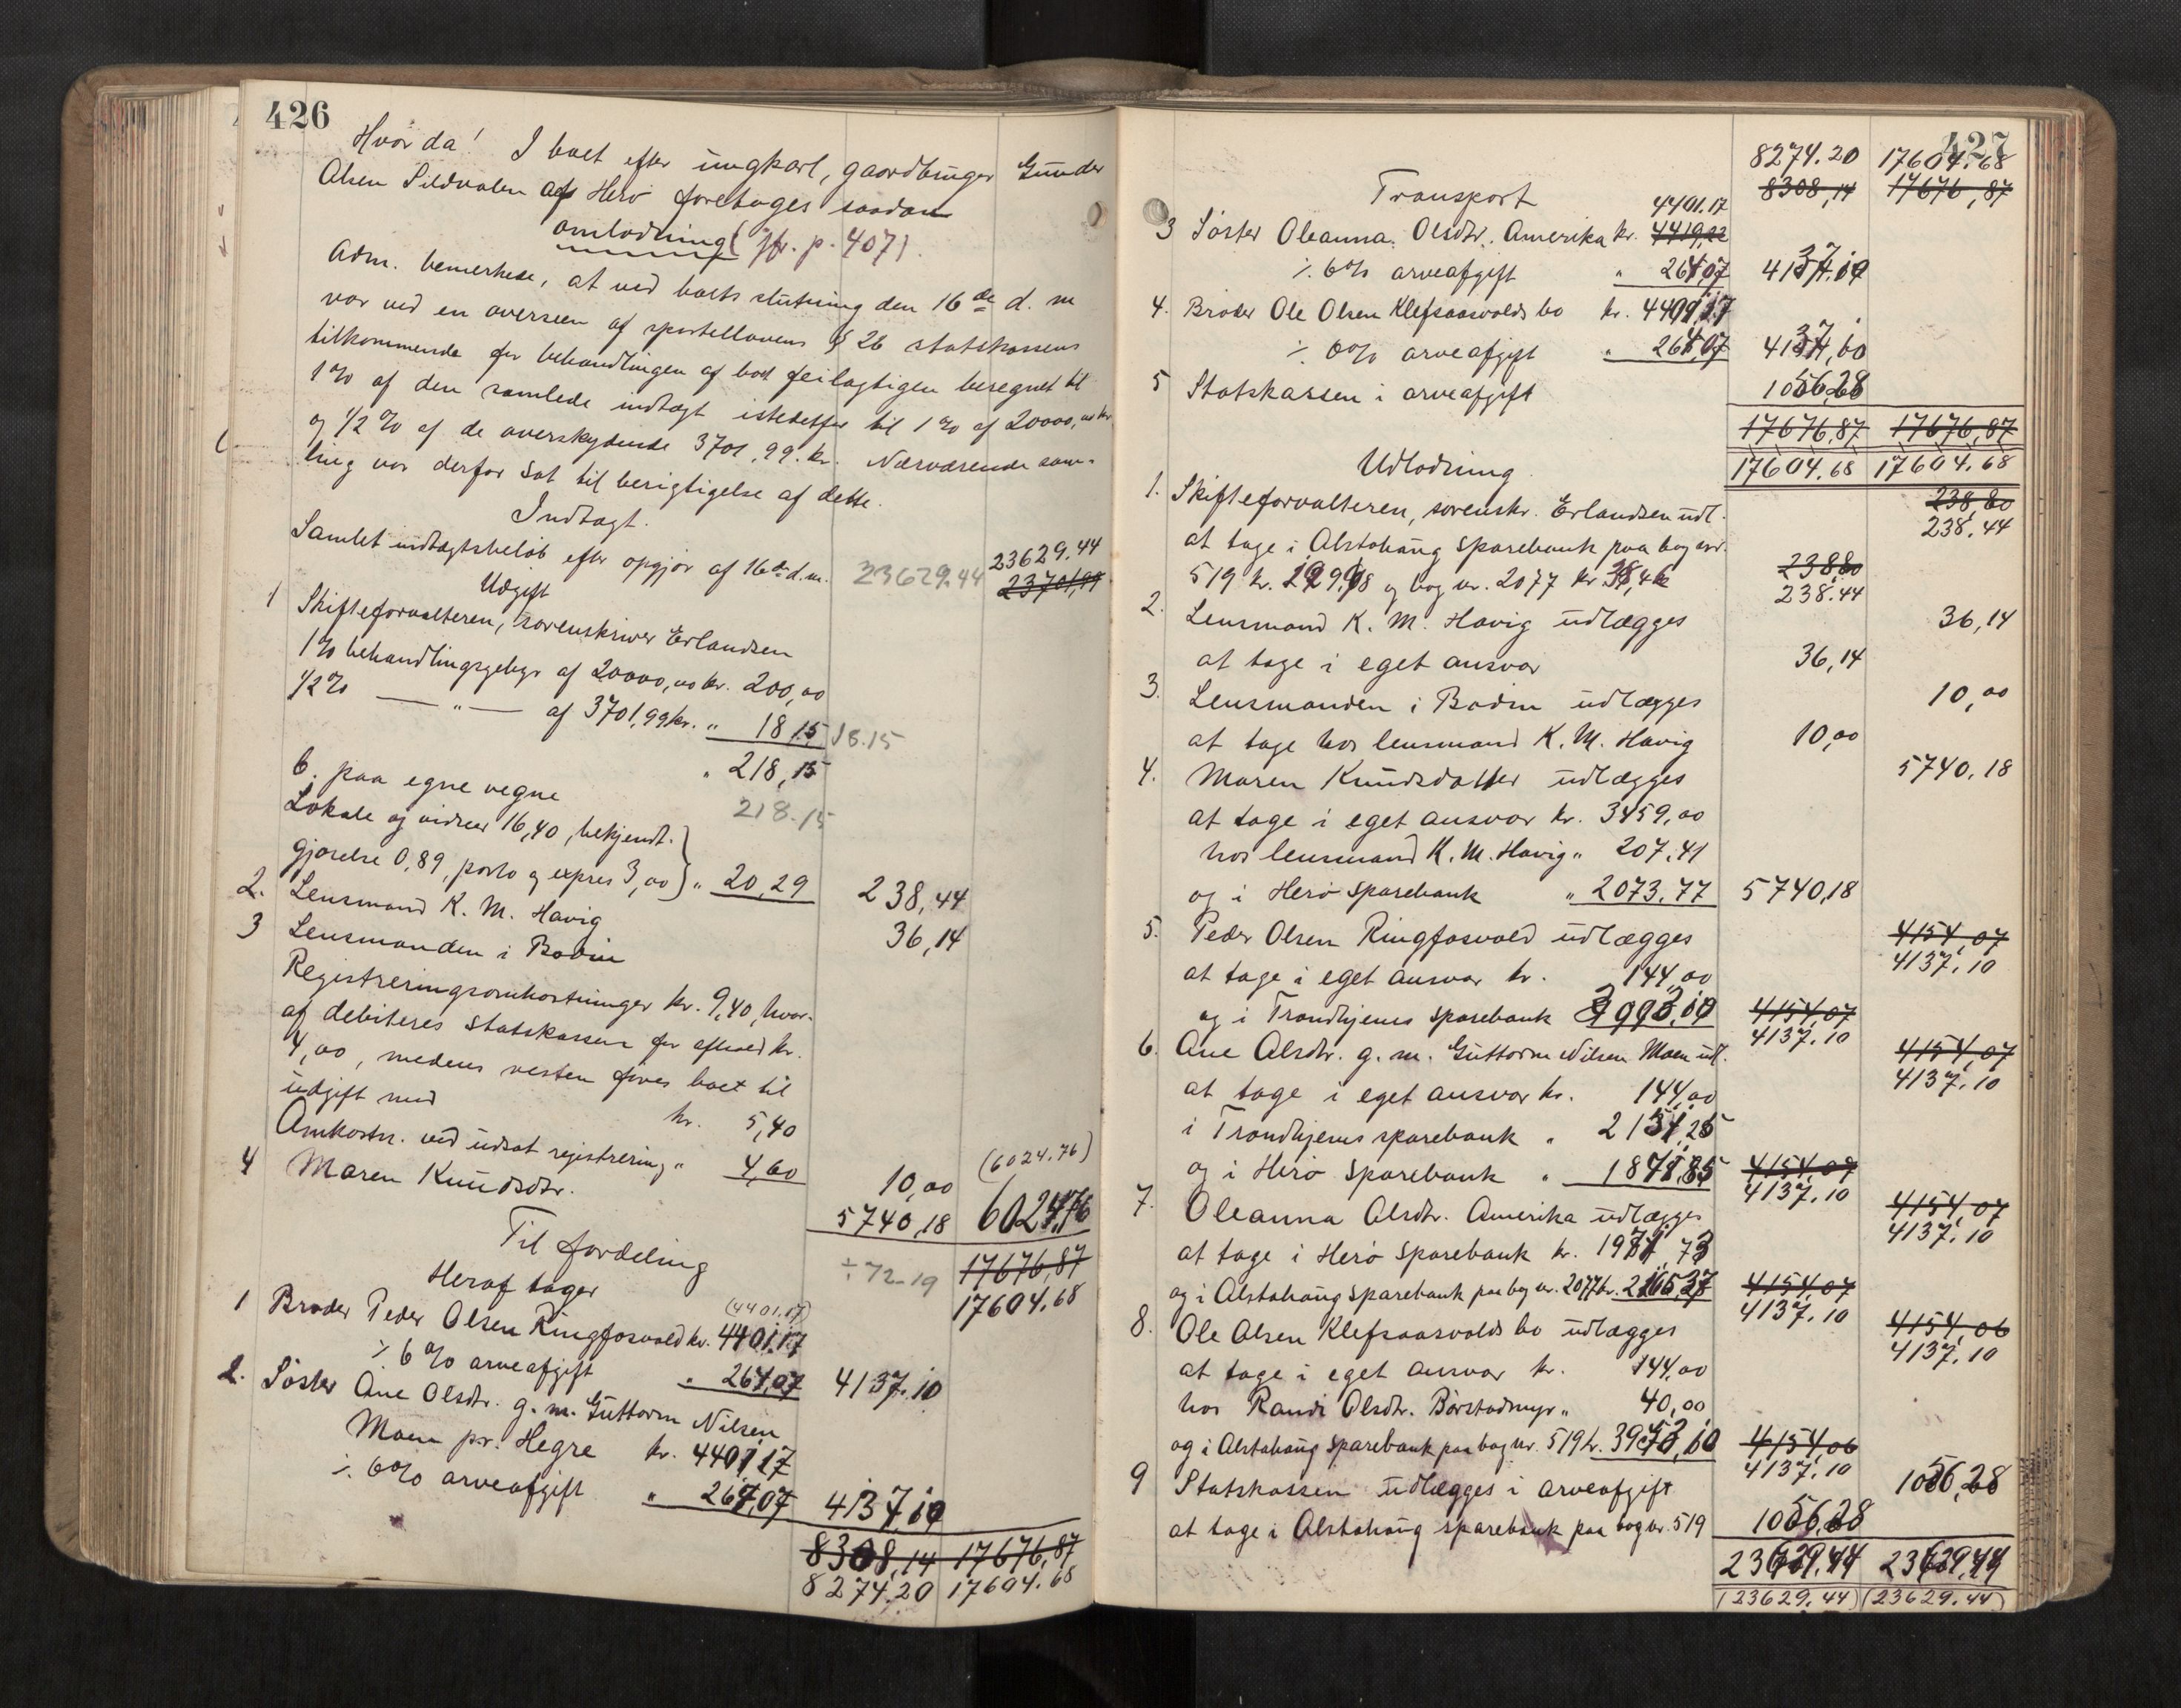 426
Hvor da! I boet efter ungkarl, gaardbruger Gunder
Olsen Sildvalen af Herø foretages saadan
omlodning (Jfr. p. 407).
Adm. bemerkede, at ved boets slutning den 16de d. m
var ved en overseen af sportellovens § 26 statskassens
tilkommende for behandlingen af boet feilagtigen beregnet til
1% af den samlede indtægt istedetfor til 1% af 20000,00 kr.
og 1/2% af de overskydende 3701,99 kr. Nærværende sam-
ling var derfor sat til berigtigelse af dette.
Indtægt.
Samlet indtægtsbeløb efter opgjør af 16de d.m. 23629.44 23629.44
23701,99
Udgift
1 Skifteforvalteren, sorenskriver Erlandsen
1% behandlingsgebyr af 20000,00 kr. 200,00
1/2% — " — af 3701,99 kr. " 18,15 18.15
" 218,15
218.15
b. paa egne vegne
Lokale og vidner 16,40, bekjendt-
gjørelse 0,89, porto og expres 3,00 } " 20,29 238,44
2. Lensmand K. M. Havig 36,14
3 Lensmanden i Bodin
Registreringsomkostninger kr. 9,40, hvor-
af debiteres statskassen for afhold kr.
4,00, medens resten føres boet til
udgift med kr. 5,40
Omkostn. ved udsat registrering " 4,60 10,00 (6024.76)
4 Maren Knudsdtr. 5740,18 6024,76
Til fordeling ÷72-19 17676,87
17604.68
Heraf tager
1 Broder Peder Olsen Ringfosvold kr. 4401.17 (4401.17)
÷ 6% arveafgift " 264,07 4137.10
2. Søster Ane Olsdtr. g. m. Guttorm Nilsen
Moen pr. Hegre kr. 4401,17
÷ 6% arveafgift " 264,07 4137,10
8308,14 17676,87
8274.20 17604.68
427
8274.20 17604.68
Transport 8308,14 17676,87
4401.17
3 Søster Oleanna Olsdtr. Amerika kr. 4419,22
÷ 6% arveafgift " 264,07 4137.10
4. Broder Ole Olsen Klefsaasvolds bo kr. 4401,17
÷ 6% arveafgift " 264,07 4137,10
5 Statskassen i arveafgift 1056,28
17676,87 17676,87
17604.68 17604.68
Udlodning
1. Skifteforvalteren, sorenskr. Erlandsen udl. 238,80
238,44
at tage i Alstahaug sparebank paa bog nr.
519 kr. 199,98 og bog nr. 2077 kr 38,46 238,80
238.44
2. Lensmand K. M. Havig udlægges 36,14
at tage i eget ansvar 36,14
3. Lensmanden i Bodin udlægges 10,00
at tage hos lensmand K. M. Havig 10,00
4. Maren Knudsdatter udlægges 5740,18
at tage i eget ansvar kr. 3459,00
hos lensmand K. M. Havig " 207,41
og i Herø sparebank " 2073,77 5740,18
5. Peder Olsen Ringfosvold udlægges 4154,07
4137.10
at tage i eget ansvar kr. 144,00
og i Trondhjems sparebank 3993,10 4154,07
4137.10
6. Ane Olsdtr. g. m. Guttorm Nilsen Moen udl. 4154,07
4137.10
at tage i eget ansvar kr. 144,00
i Trondhjems sparebank " 2151,25
og i Herø sparebank " 1841,85 4154,07
4137.10
7. Oleanna Olsdtr. Amerika udlægges 4154,07
4137.10
at tage i Herø sparebank kr. 1971,73
og i Alstahaug sparebank paa bog nr. 2077 kr. 2165,37 4154,07
4137.10
8. Ole Olsen Klefsaasvolds bo udlægges 4154,06
4137.10
at tage i eget ansvar kr. 144,00
hos Randi Olsdtr. Børstadmyr " 40,00
og i Alstahaug sparebank paa bog nr. 519 kr. 3953,10 4154,06
4137.10
9 Statskassen udlægges i arveafgift 1056,28
at tage i Alstahaug sparebank paa bog nr. 519 1056,28
23629,44 23629,44
(23629.44) (23629.44)